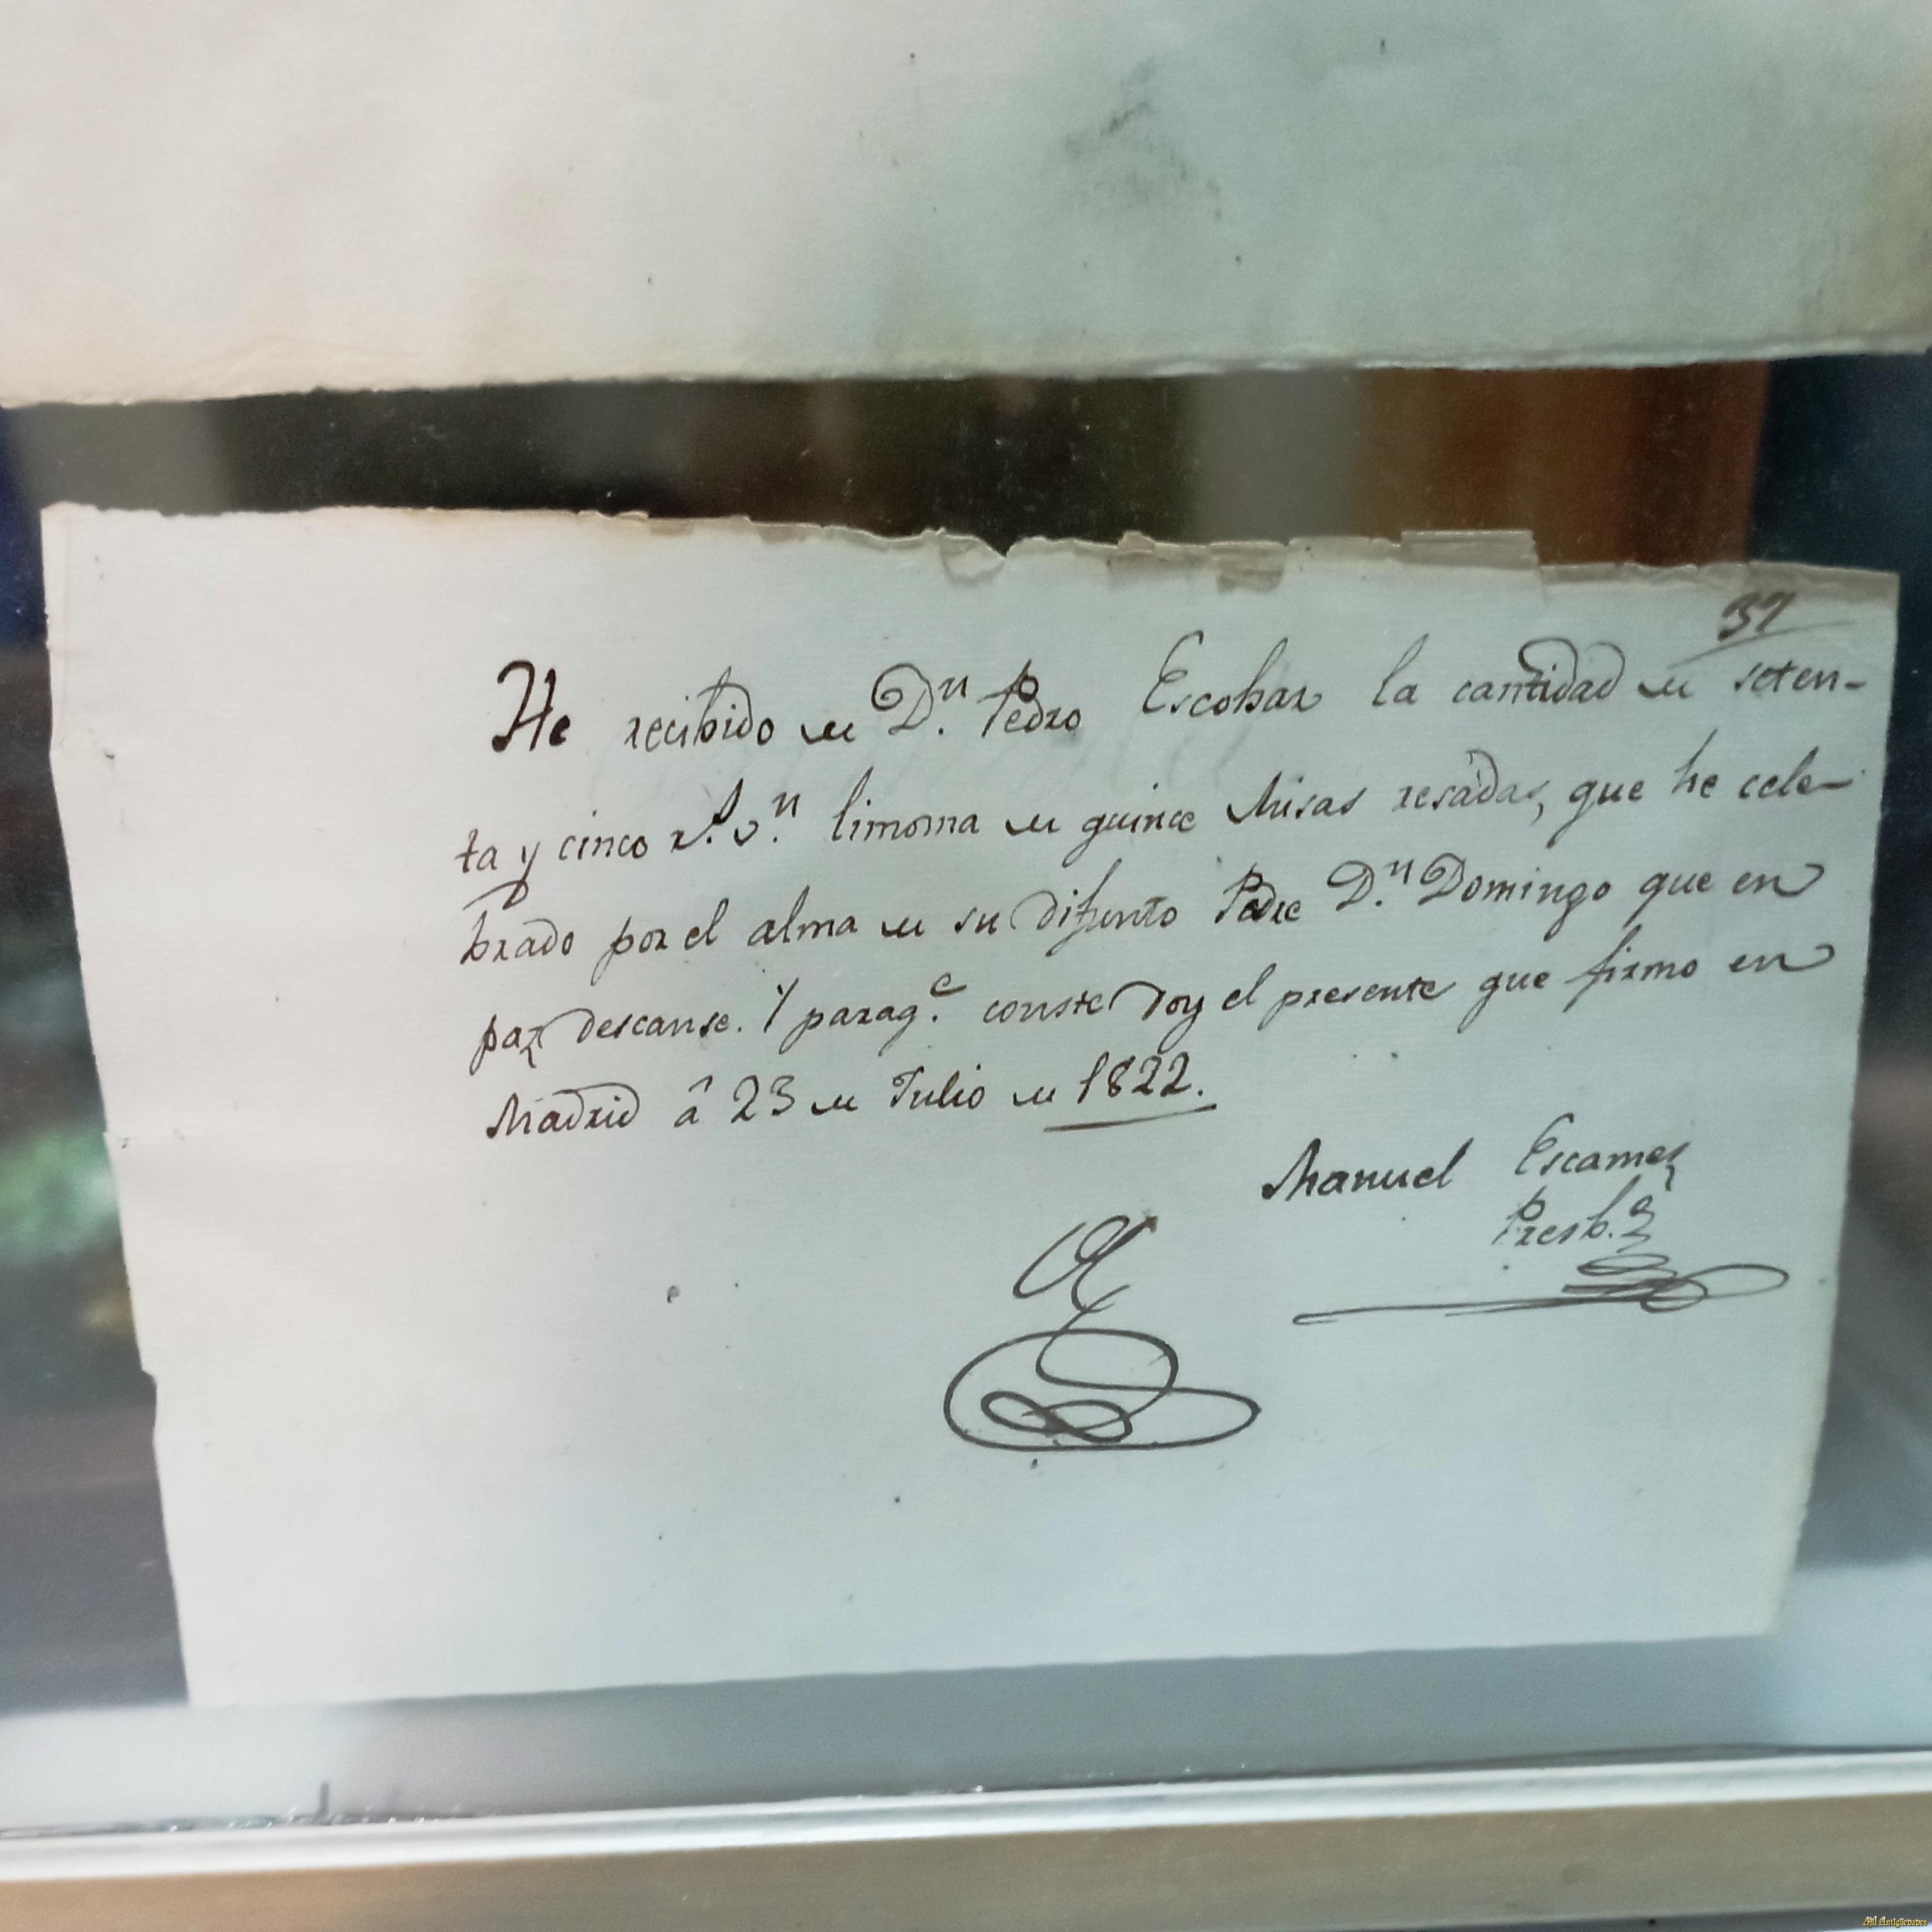 37
He recibido de Dn. Pedro Escobar la cantidad de seten-
ta y cinco r.s v.n limosna de quince Misas resadas, que he cele-
brado por el alma de su difunto Padre Dn. Domingo que en
paz descanse. Y paraq.e conste doy el presente que firmo en
Madrid â 23 de Julio de 1822.
Manuel Escamez
Presb.o
Mil Antigüedades